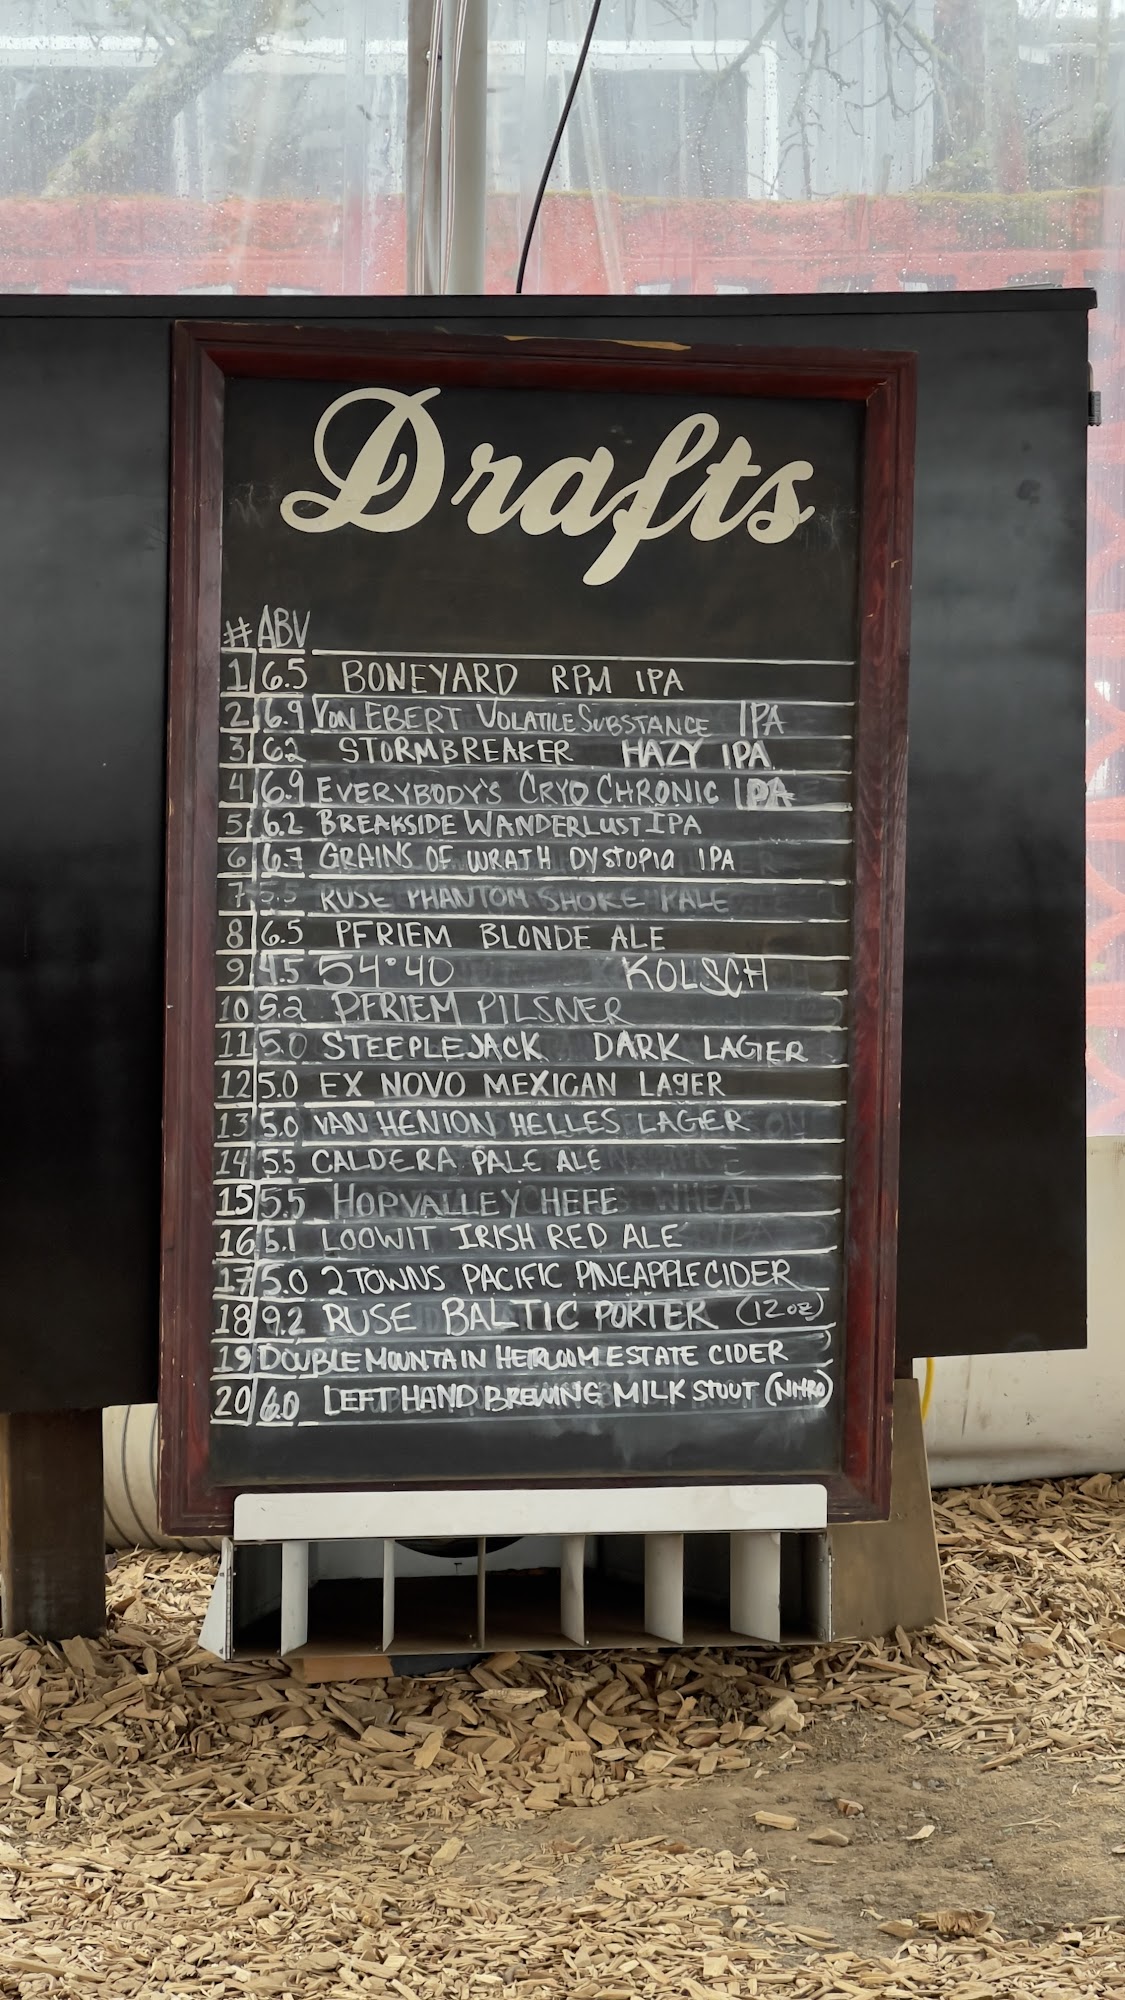 Drafts
# ABV
1 6.5 BONEYARD RPM IPA
2 6.9 VON EBERT VOLATILE SUBSTANCE IPA
3 62 STORMBREAKER HAZY IPA
4 6.9 EVERYBODY'S CRYO CHRONIC IPA
5 6.2 BREAKSIDE WANDERLUST IPA
6 6.7 GRAINS OF WRATH DYSTOPIA IPA
7 5.5 RUSE PHANTOM SMOKE PALE
8 6.5 PFRIEM BLONDE ALE
9 4.5 54°40 KOLSCH
10 5.2 PFRIEM PILSNER
11 5.0 STEEPLEJACK DARK LAGER
12 5.0 EX NOVO MEXICAN LAGER
13 5.0 VAN HENION HELLES LAGER
14 5.5 CALDERA PALE ALE
15 5.5 HOPVALLEY HEFE
16 5.1 LOOWIT IRISH RED ALE
17 5.0 2 TOWNS PACIFIC PINEAPPLE CIDER
18 9.2 RUSE BALTIC PORTER (12oz)
19 DOUBLE MOUNTAIN HEIRLOOM ESTATE CIDER
20 6.0 LEFT HAND BREWING MILK STOUT (NITRO)